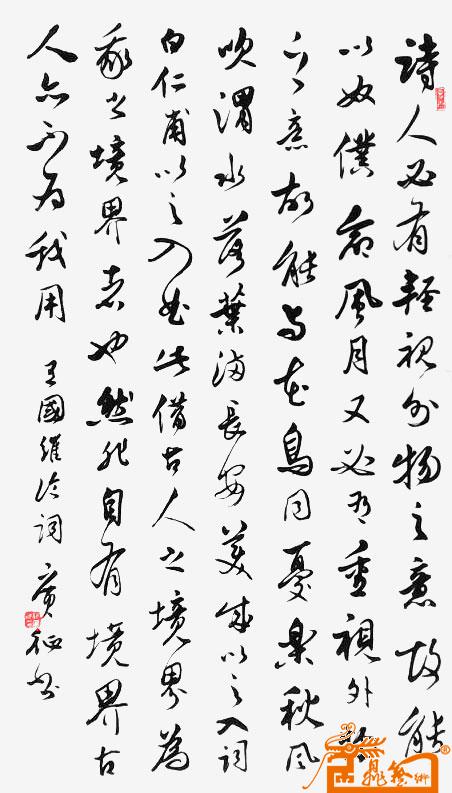 詩人必有輕視外物之意故能
以奴僕命風月又必有重視外物
之意故能与花鳥同憂樂秋風
吹渭水落葉滿長安美成以之入詞
白仁甫以之入曲此借古人之境界為
我之境界者也然非自有境界古
人亦不为我用 王國維论詞 征书